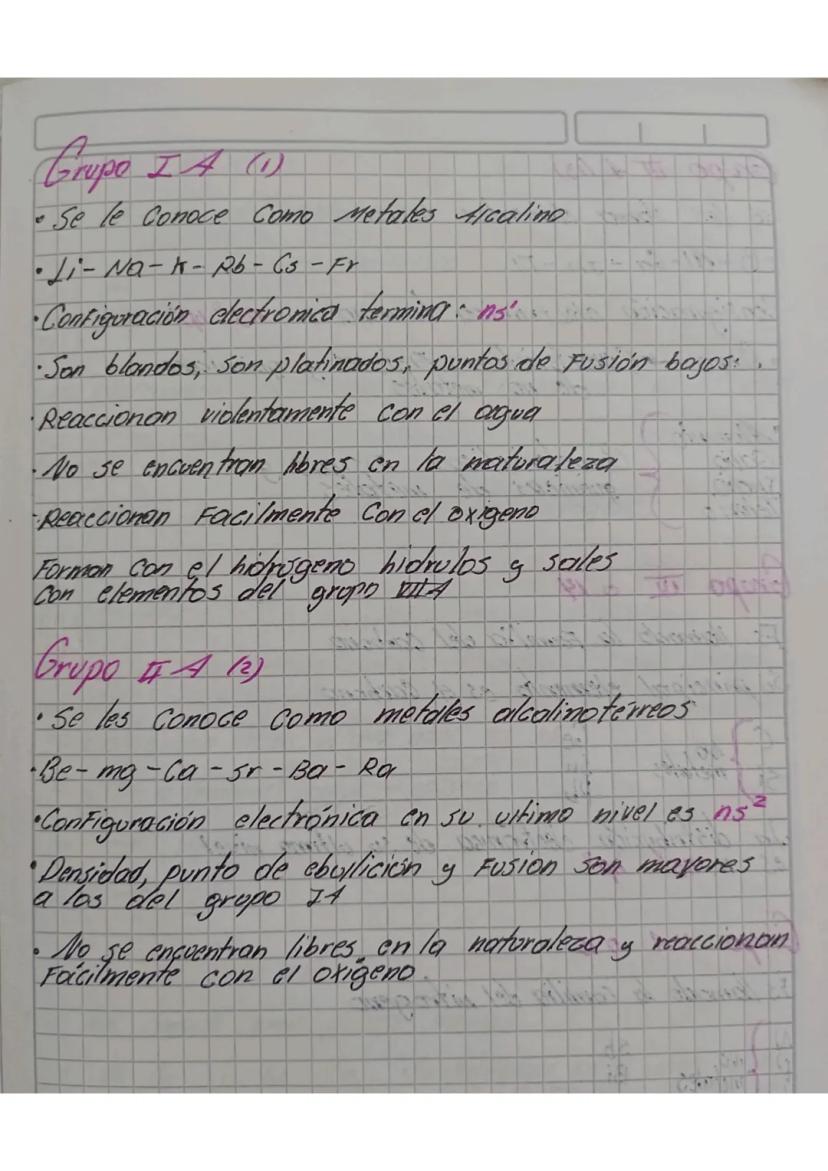 Grupo I A (1)
• Se le Conoce Como Metales Alcalino
• Li - Na - K - Rb - Cs - Fr
• Configuración electronica termina: ns¹
• Son blandos, son platinados, puntos de Fusión bajos: .
• Reaccionan violentamente con el agua
• No se encuentran libres en la naturaleza
- Reaccionan Facilmente Con el oxigeno
Forman con el hidrógeno hidrulos y sales
con elementos del grupo VIIA
Grupo II A (2)
• Se les conoce como metales alcalinotérreos
• Be - mg - Ca - Sr - Ba - Ra
• Configuración electrónica en su ultimo nivel es ns²
• Densidad, punto de ebullición y Fusión son mayores
a los del grupo IA
• No se encuentran libres en la naturaleza y reaccionan
Fácilmente con el oxígeno